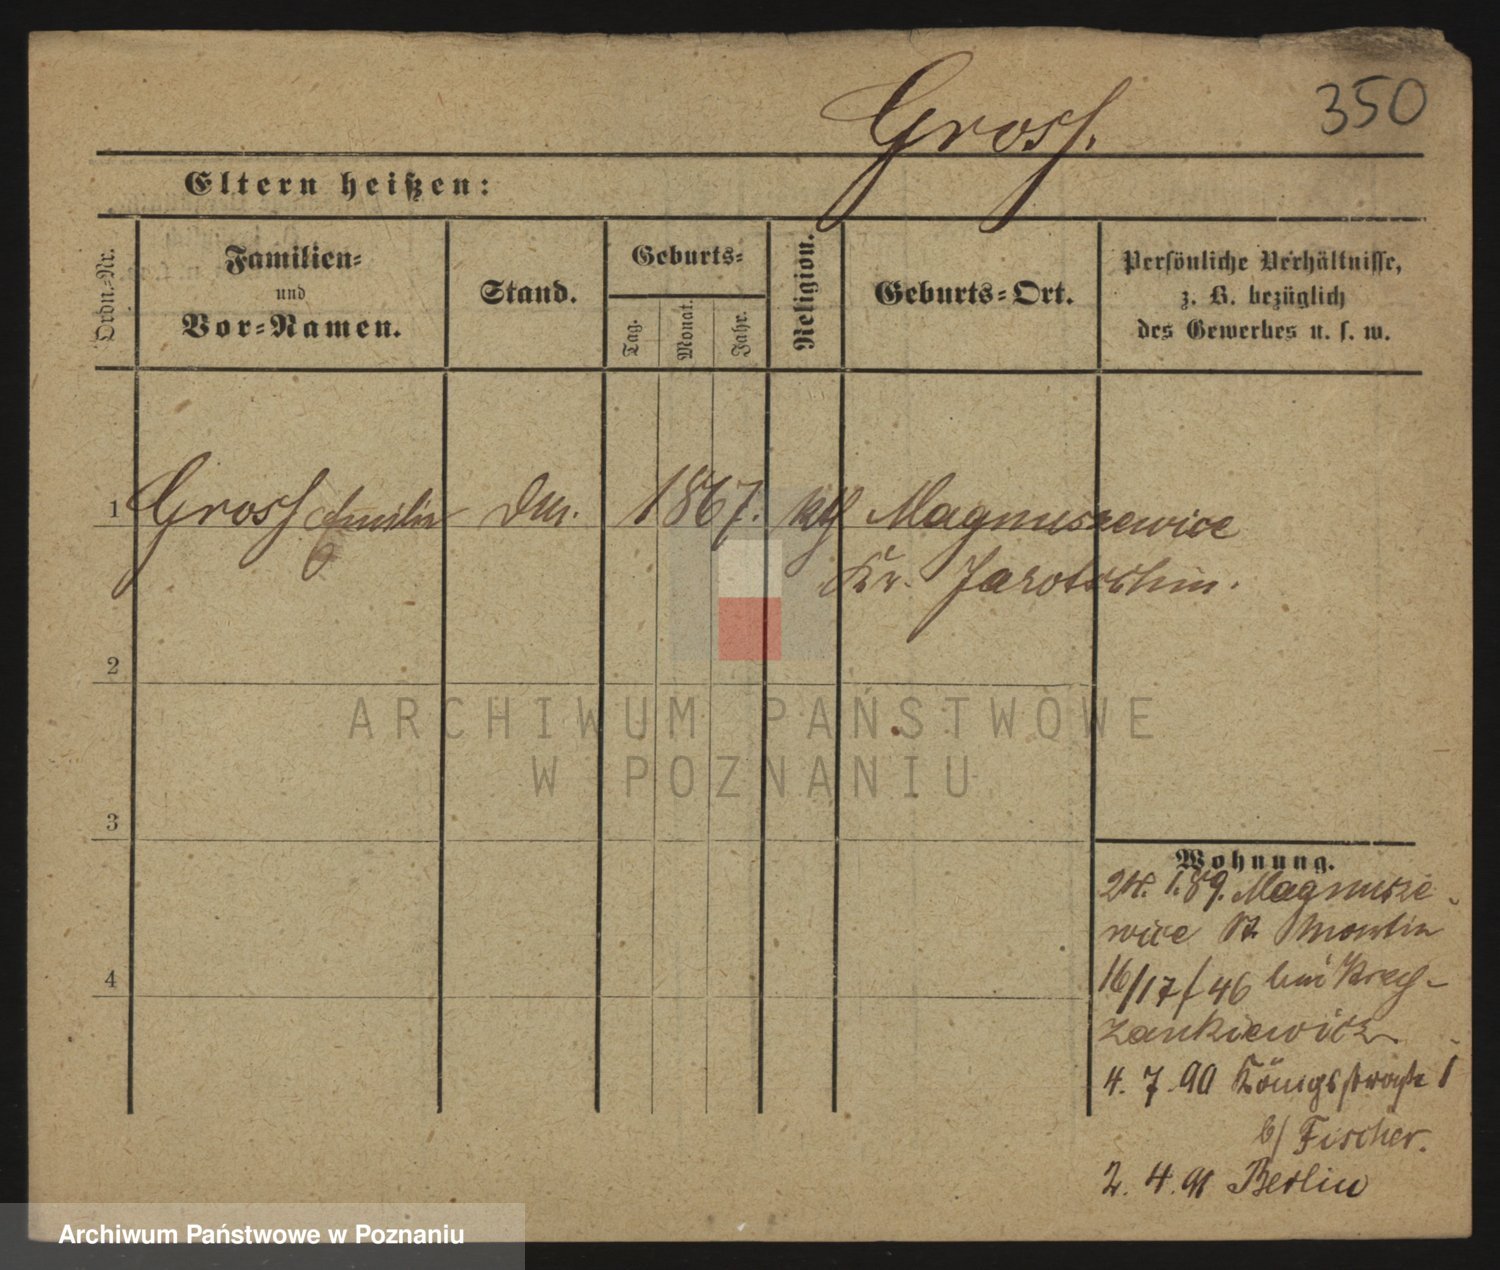 350
Gross.
Eltern heißen:
Ordn.-Nr.
Familien-
und
Vor-Namen.
Stand.
Geburts-
Tag.
Monat.
Jahr.
Religion.
Geburts-Ort.
Persönliche Verhältnisse,
z. B. bezüglich
des Gewerbes u. s. w.
1 Gross Emilie 1867. kth Magnuszewice
Kr. Jarotschin.
2
3
4
Wohnung.
24. 1. 89. Magnusze-
wice St. Martin
16/17/46 bei
4. 7. 90 Königsstraße 1
b/ Fischer.
2. 4. 91 Berlin
ARCHIWUM PAŃSTWOWE
W POZNANIU
Archiwum Państwowe w Poznaniu